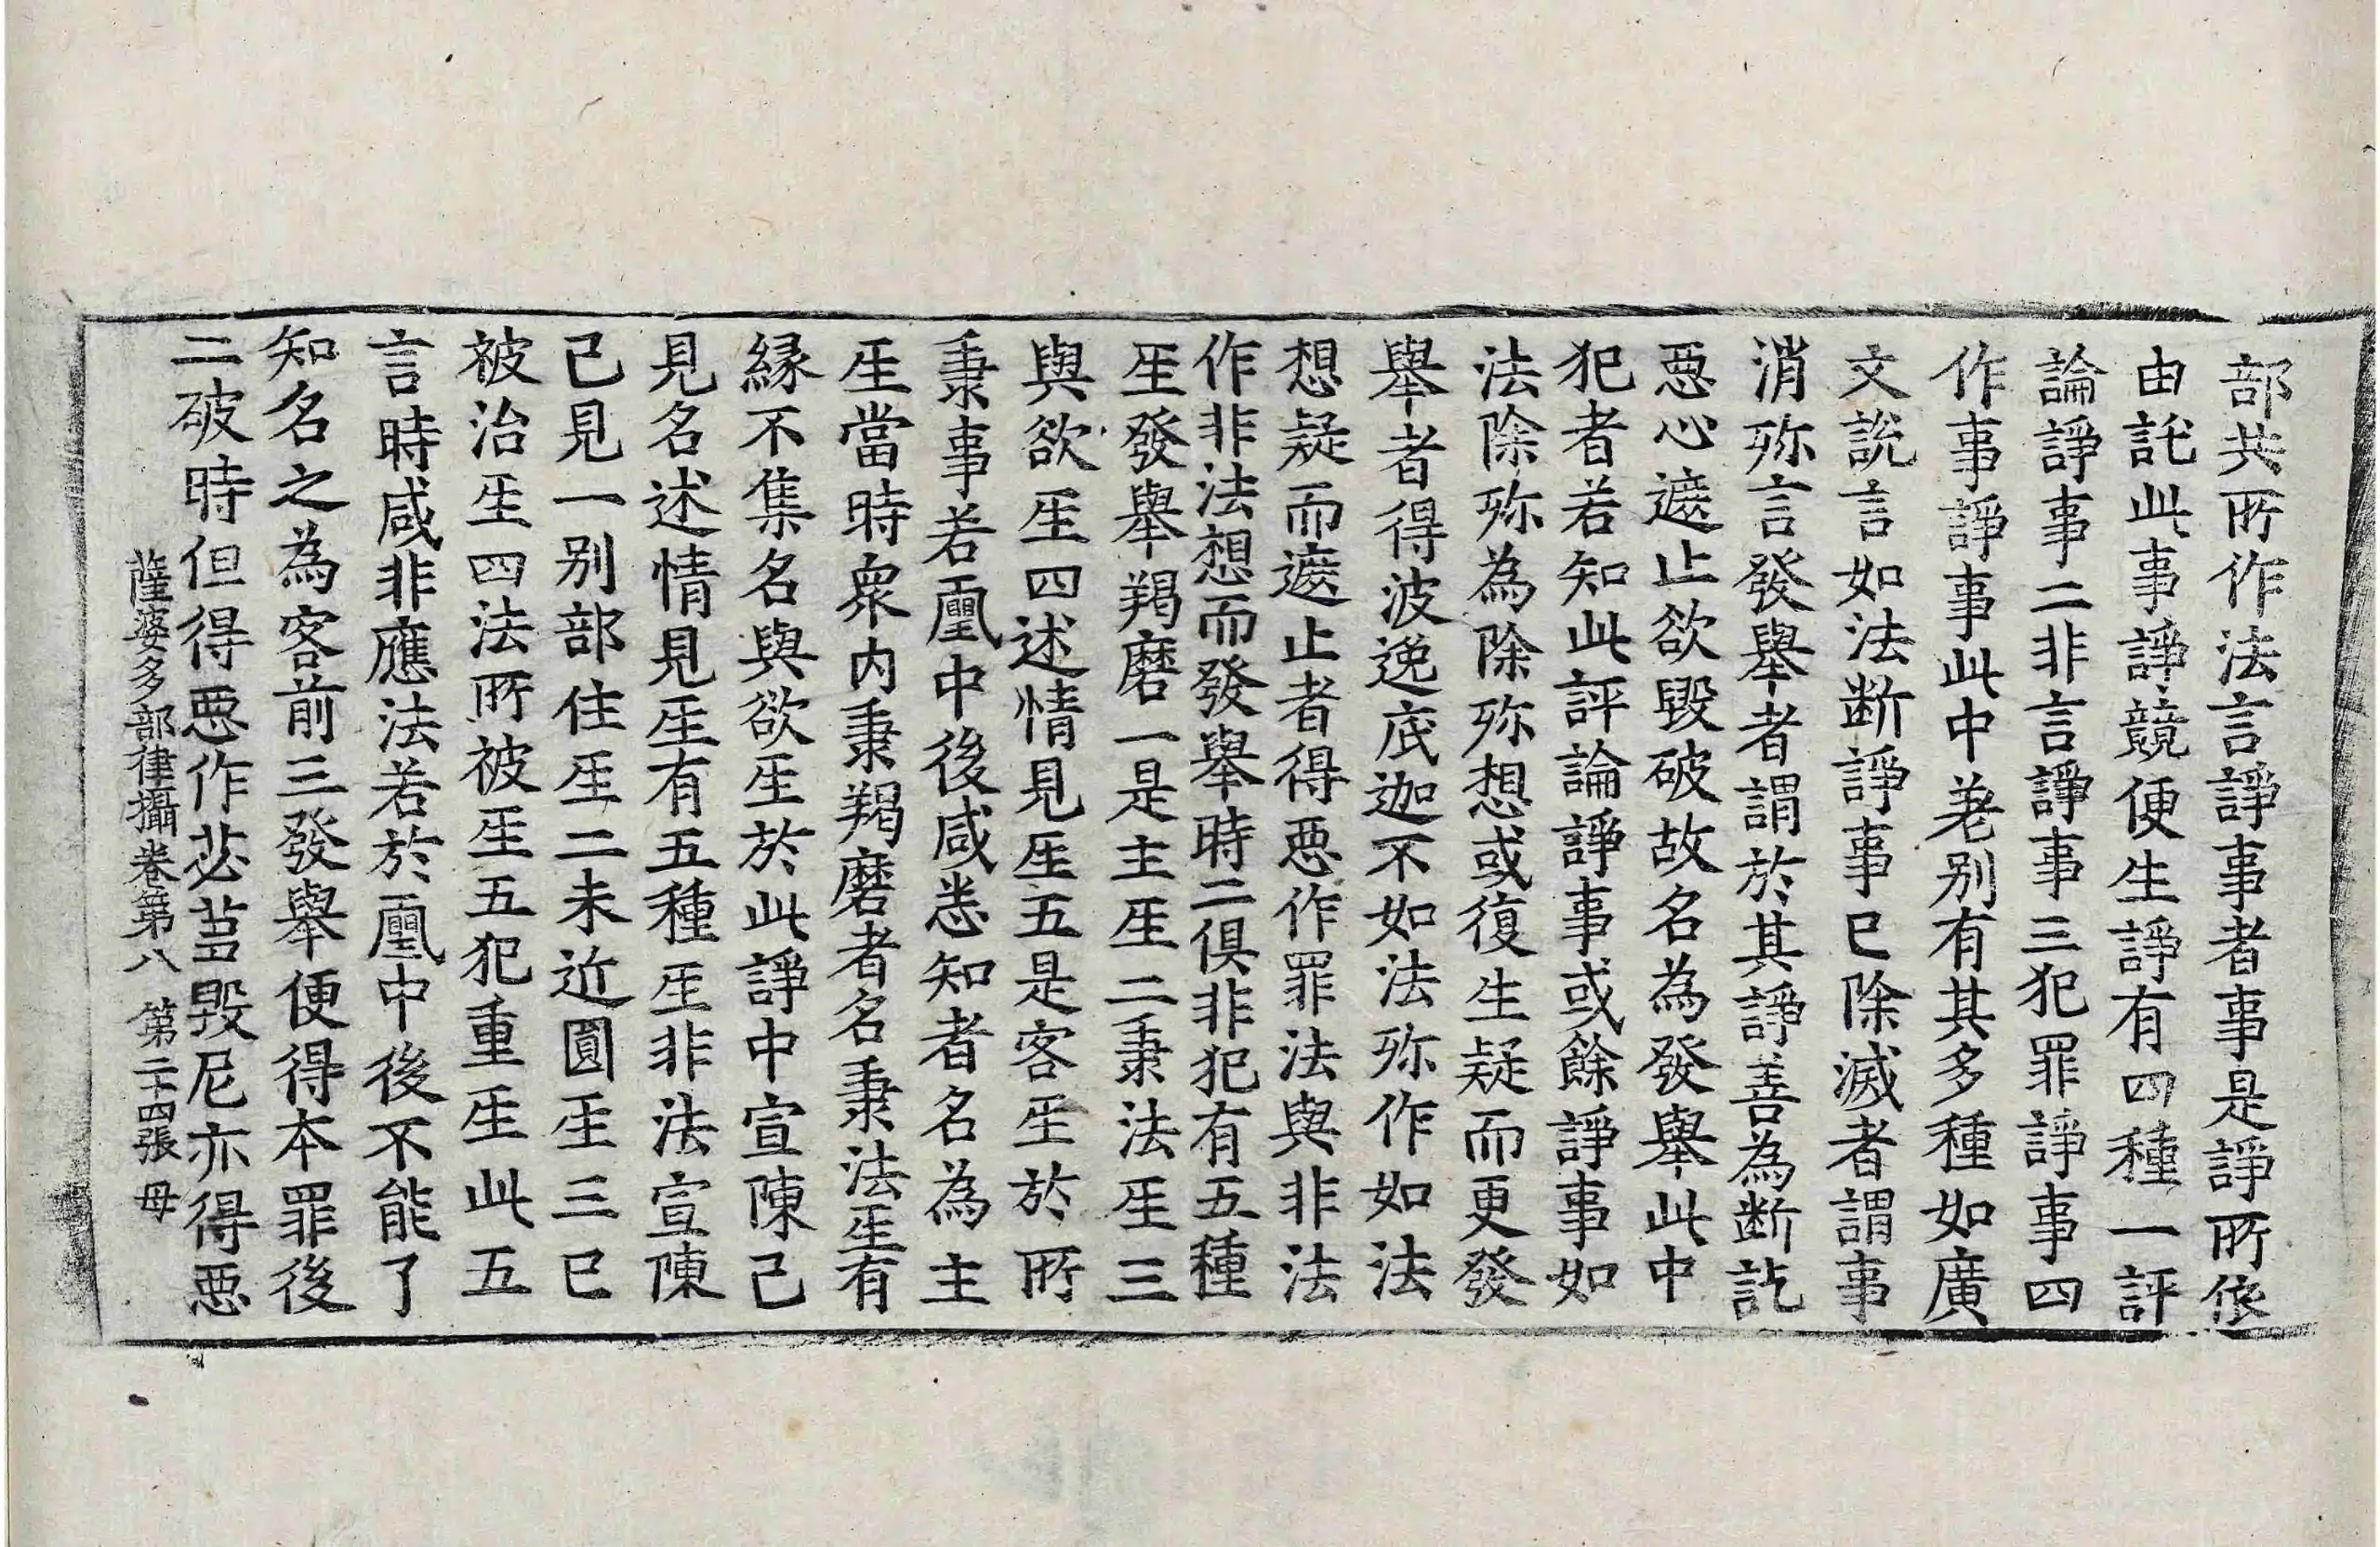 部共所作法言諍事者事是諍所依
由託此事諍競便生諍有四種一評
論諍事二非言諍事三犯罪諍事四
作事諍事此中差别有其多種如廣
文說言如法断諍事已除滅者謂事
消殄言發舉者謂於其諍善為断訖
惡心遮止欲毀破故名為發舉此中
犯者若知此評論諍事或餘諍事如
法除殄為除殄想或復生疑而更發
舉者得波逸底迦不如法殄作如法
想疑而遮止者得惡作罪法與非法
作非法想而發舉時二俱非犯有五種
𤯔發舉羯磨一是主𤯔二秉法𤯔三
與欲𤯔四述情見𤯔五是客𤯔於所
秉事若𡔈中後咸悉知者名為主
𤯔當時衆内秉羯磨者名秉法𤯔有
縁不集名與欲𤯔於此諍中宣陳己
見名述情見𤯔有五種𤯔非法宣陳
己見一别部住𤯔二未近圓𤯔三已
被治𤯔四法所被𤯔五犯重𤯔此五
言時咸非應法若於𡔈中後不能了
知名之為客前三發舉便得本罪後
二破時但得惡作苾蒭毀尼亦得惡
薩婆多部律攝卷第八 第二十四張 母